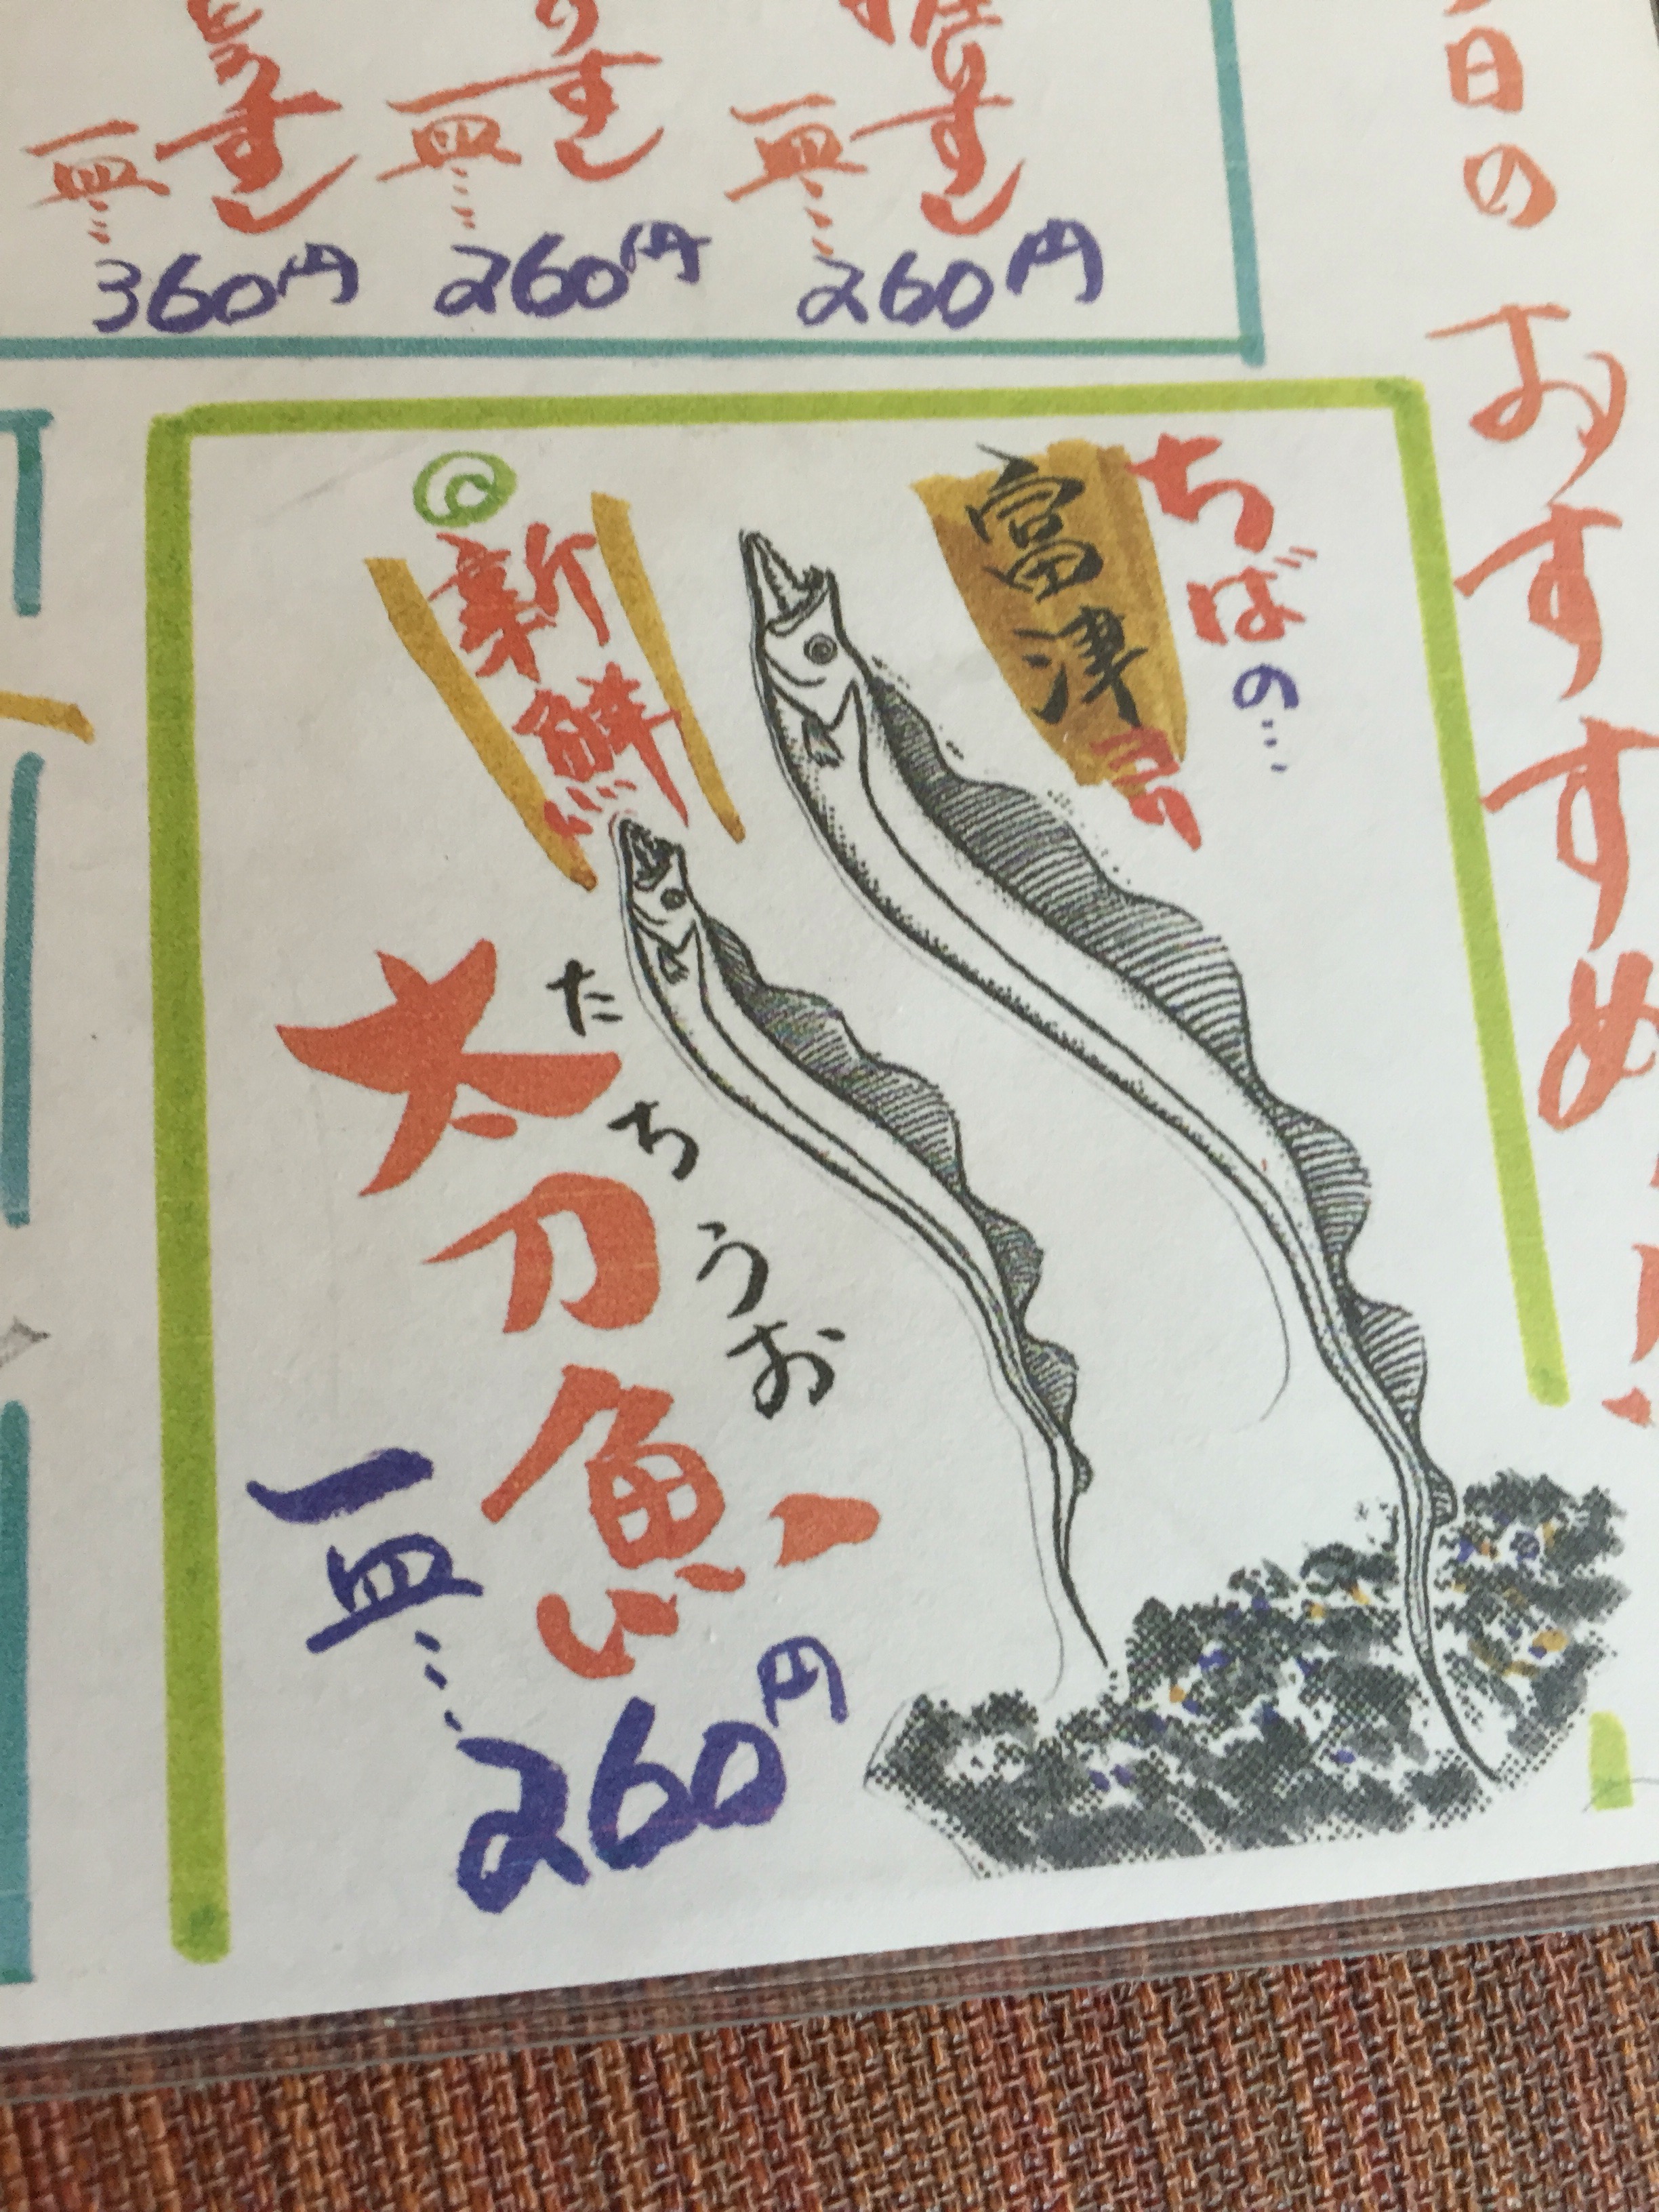 日の おすすめ
すし
一皿…
260円
のすし
一皿…
260円
すし
一皿…
360円
ちばの…
富津
新鮮
たちうお
太刀魚
一皿…
260円